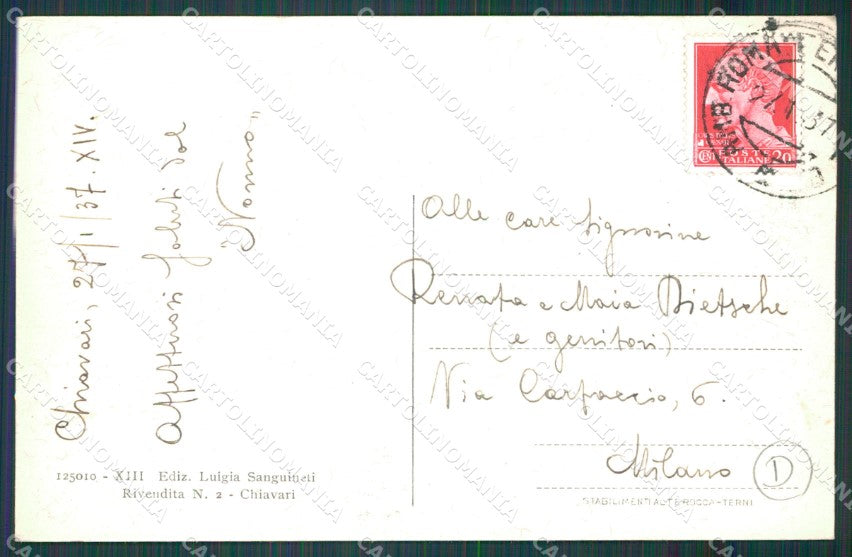 Chiavari, 27/1/37. XIV.
Affettuosi saluti dal
"Nonno"
125010 - XIII Ediz. Luigia Sanguineti
Rivendita N. 2 - Chiavari
POSTE
ITALIANE 20
ROMA
Alle care signorine
Renata e Maia Bietsche
(e genitori)
Via Carpaccio, 6.
Milano
D
STABILIMENTI ALTEROCCA-TERNI
CARTOLINOMANIA